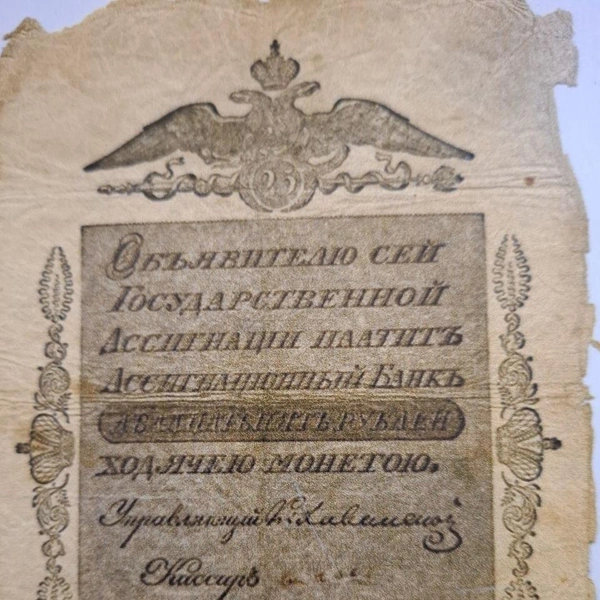 25
Объявителю сей
Государственной
Ассигнации платитъ
Ассигнаціонный Банкъ
двадцать пять рублей
ходячею монетою.
Управляющій
Кассиръ